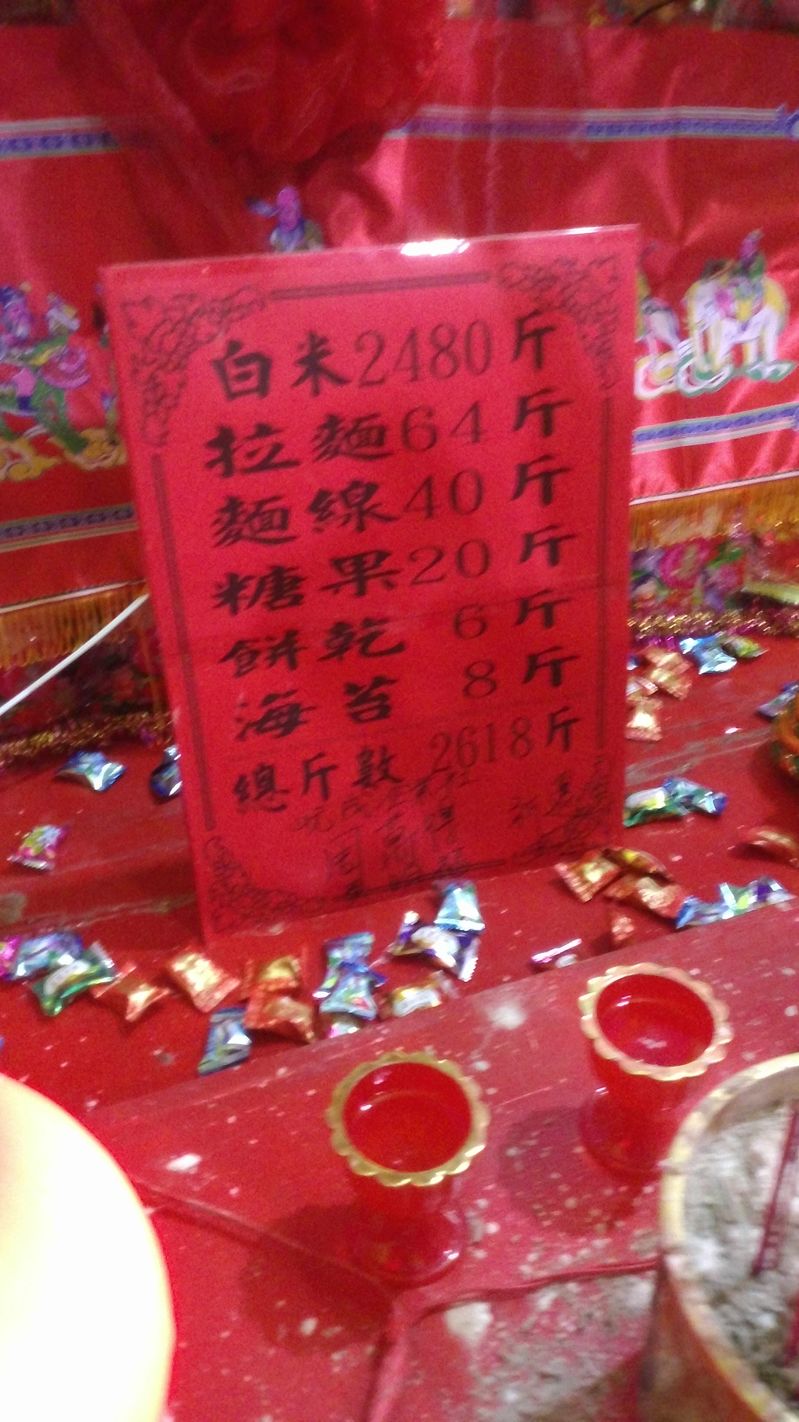 白米2480斤
拉麵64斤
麵線40斤
糖果20斤
餅乾 6斤
海苔 8斤
總斤數 2618斤